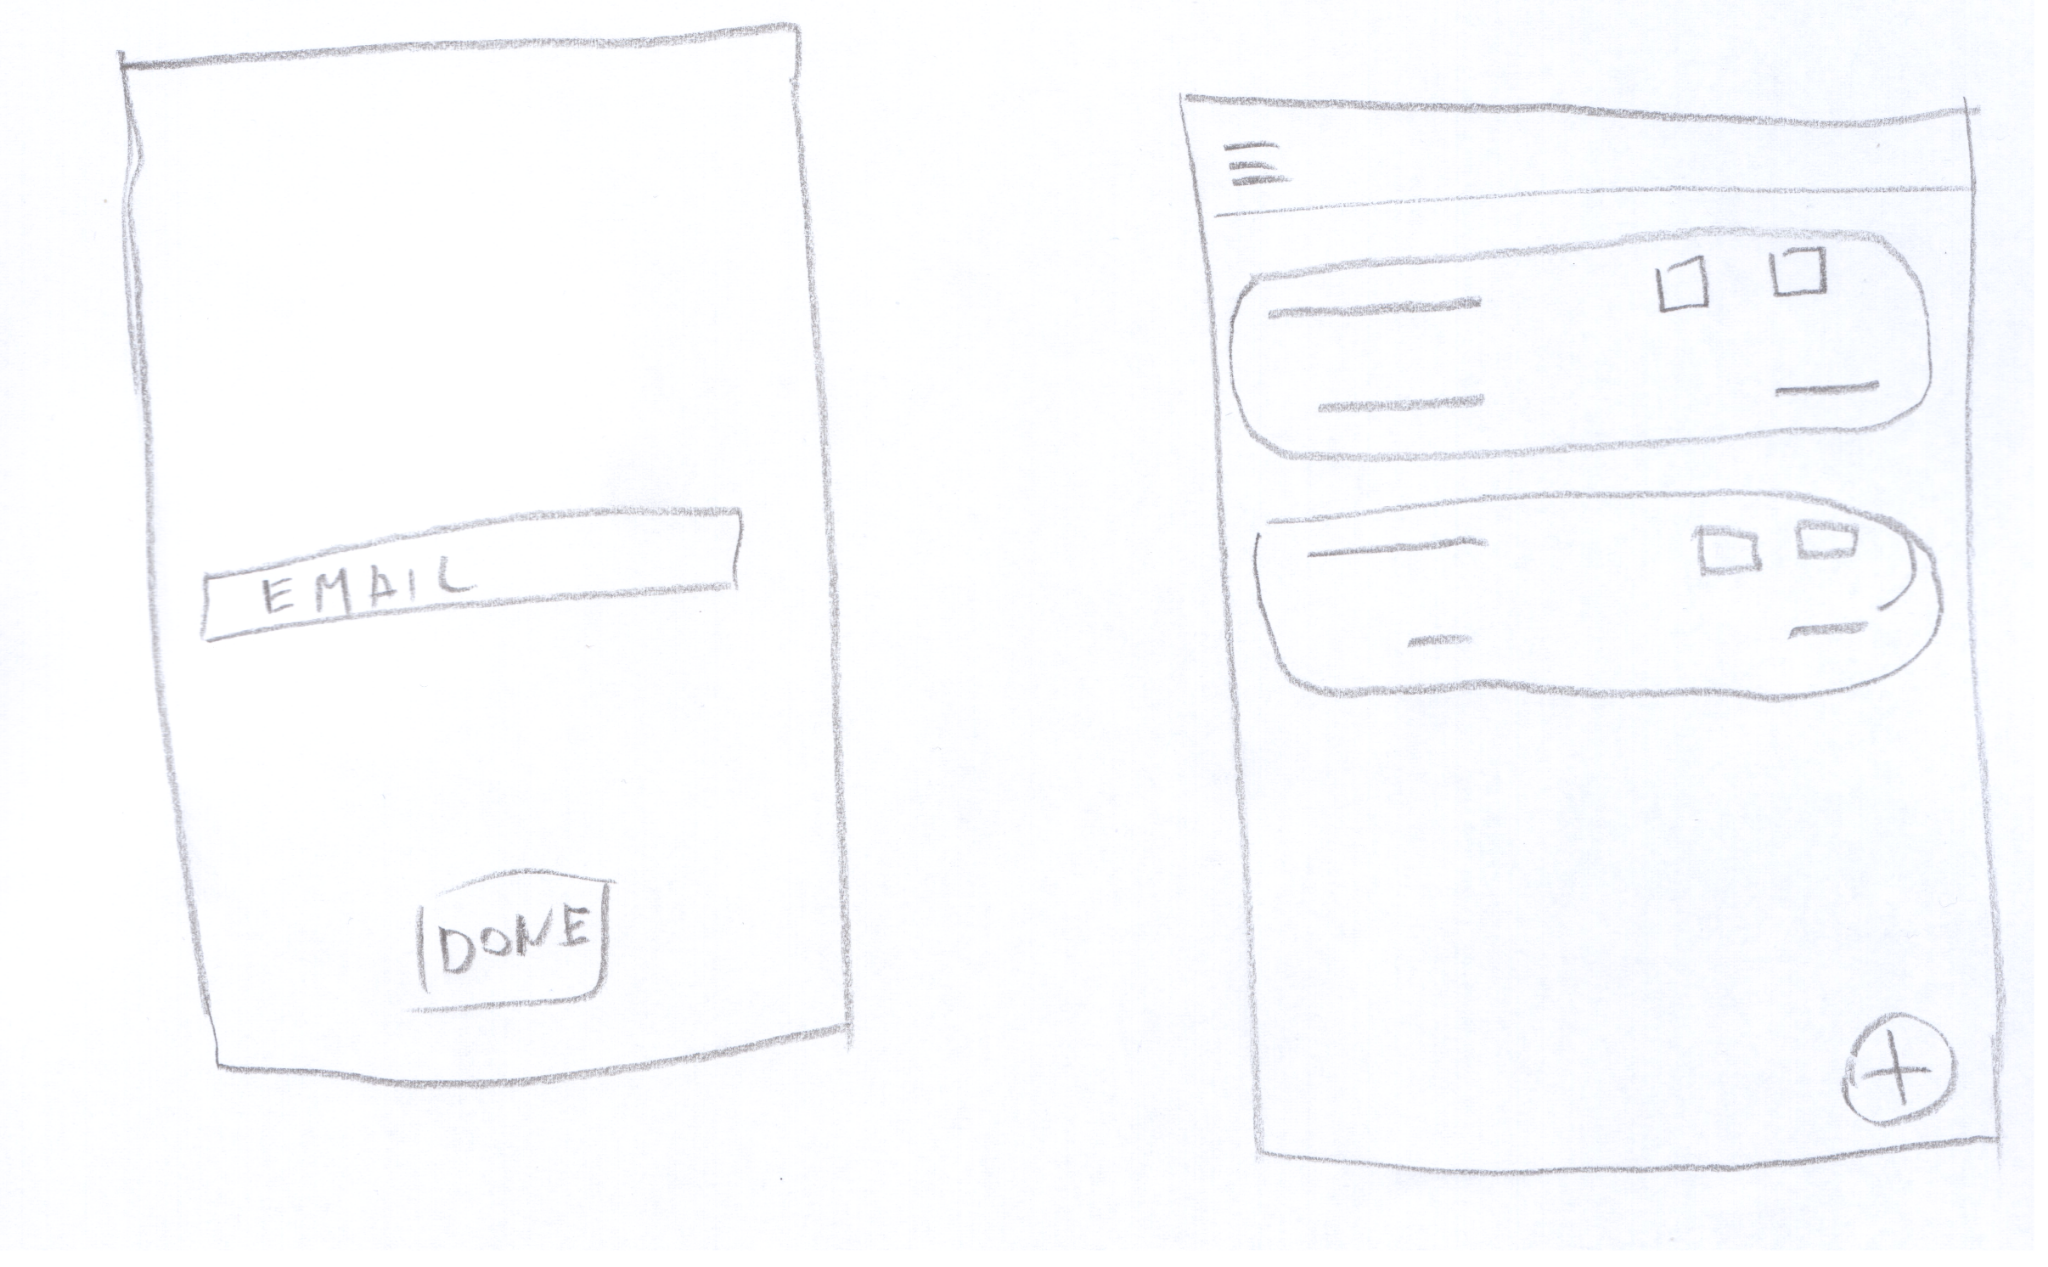 EMAIL
DONE